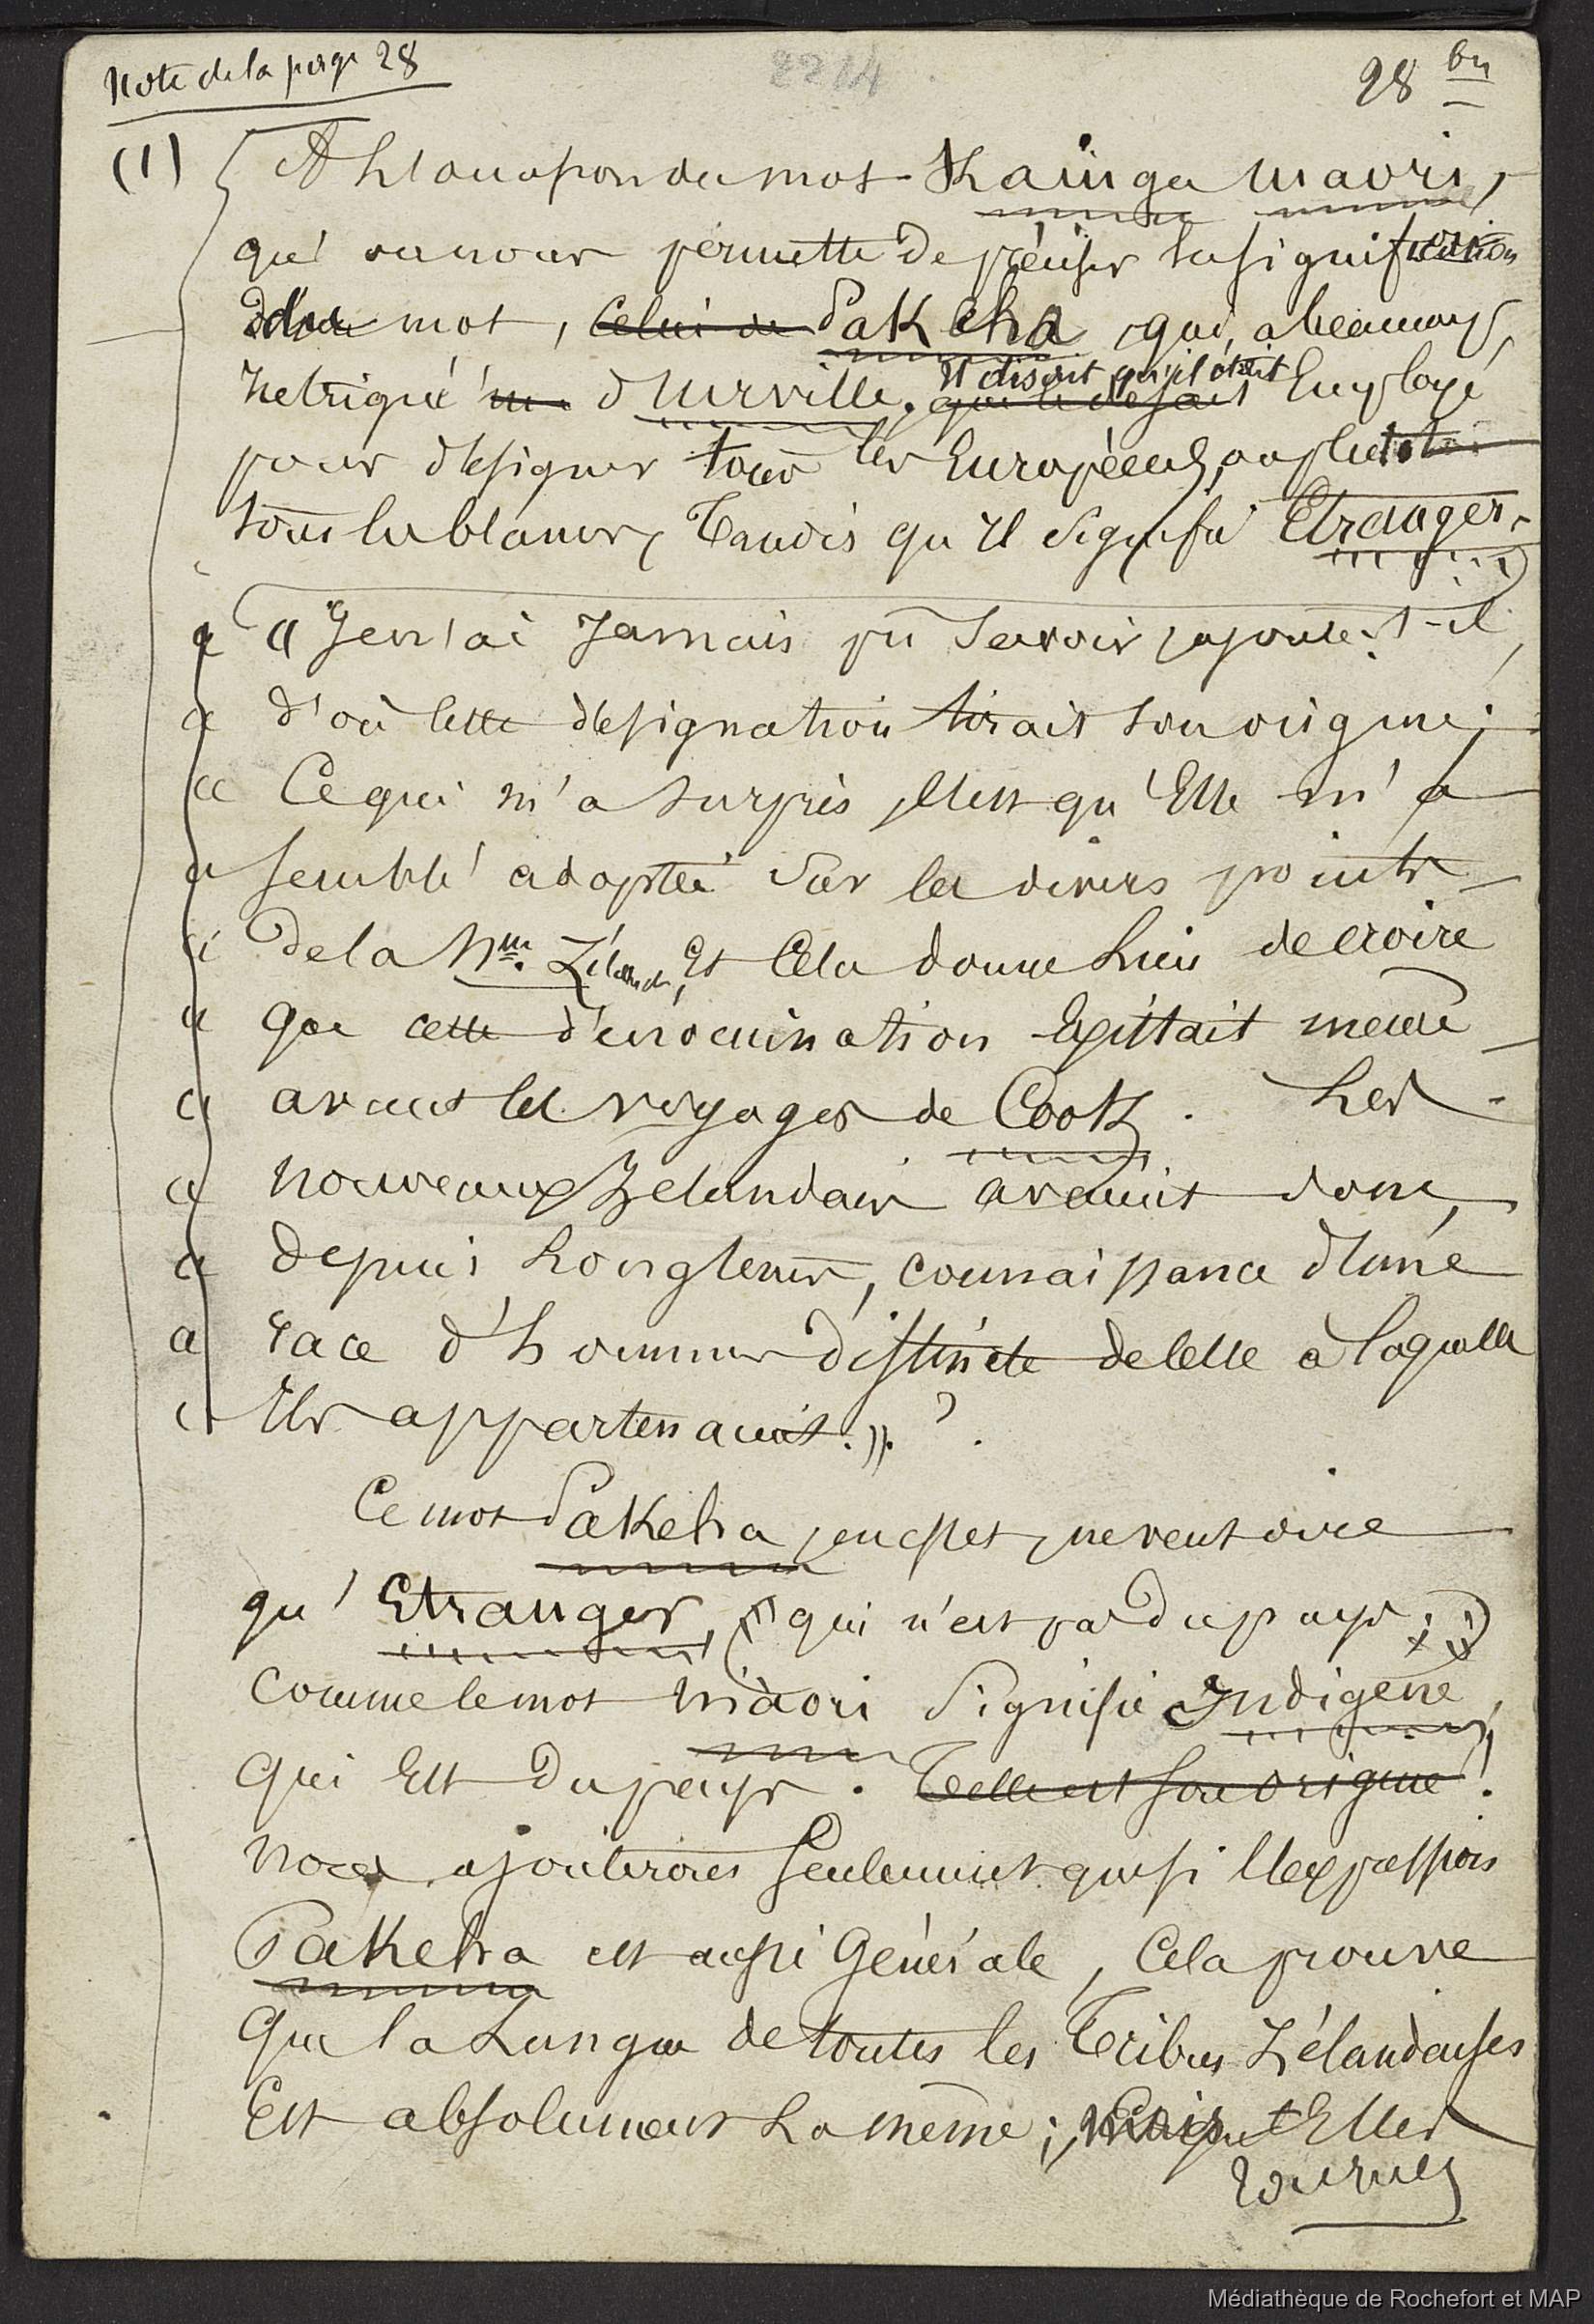 Note de la page 28
2214
28 bis
(1) A l'occasion du mot Kainga maori,
qu'on nous permette de préciser la signification
d'un mot, celui de Pakeha, qui, a beaucoup
intrigué d'Urville. Il disait qu'il était Employé
pour désigner tous les Européens, ou plutot
tous les blancs, Tandis qu'Il signifie Etranger.
« Je n'ai Jamais pû Savoir, ajoute-t-il,
« d'où cette désignation tirait son origine;
« Ce qui m'a surpris, c'est qu'Elle m'a
« semblé adoptée sur les divers points
« de la Nlle. Zélande, Et Cela donne Lieu de croire
« que cette dénomination Existait même
« avant les voyages de Cook. Les
« nouveaux Zelandais avaient donc,
« depuis Longtems, connaissance d'une
« race d'hommes distincte de celle à laquelle
« Ils appartenaient. » ?
Ce mot Pakeha, en effet, ne veut dire
qu'Etranger, (qui n'est pas du pays;)
comme le mot Maori signifie Indigène,
qui Est du pays. Telle est son origine.
nous ajouterons seulement que si l'expression
Pakeha est aussi Générale, Cela prouve
que la Langue de toutes les Tribus Zélandaises
Est absolument La même; Elles
Tournez
Médiathèque de Rochefort et MAP